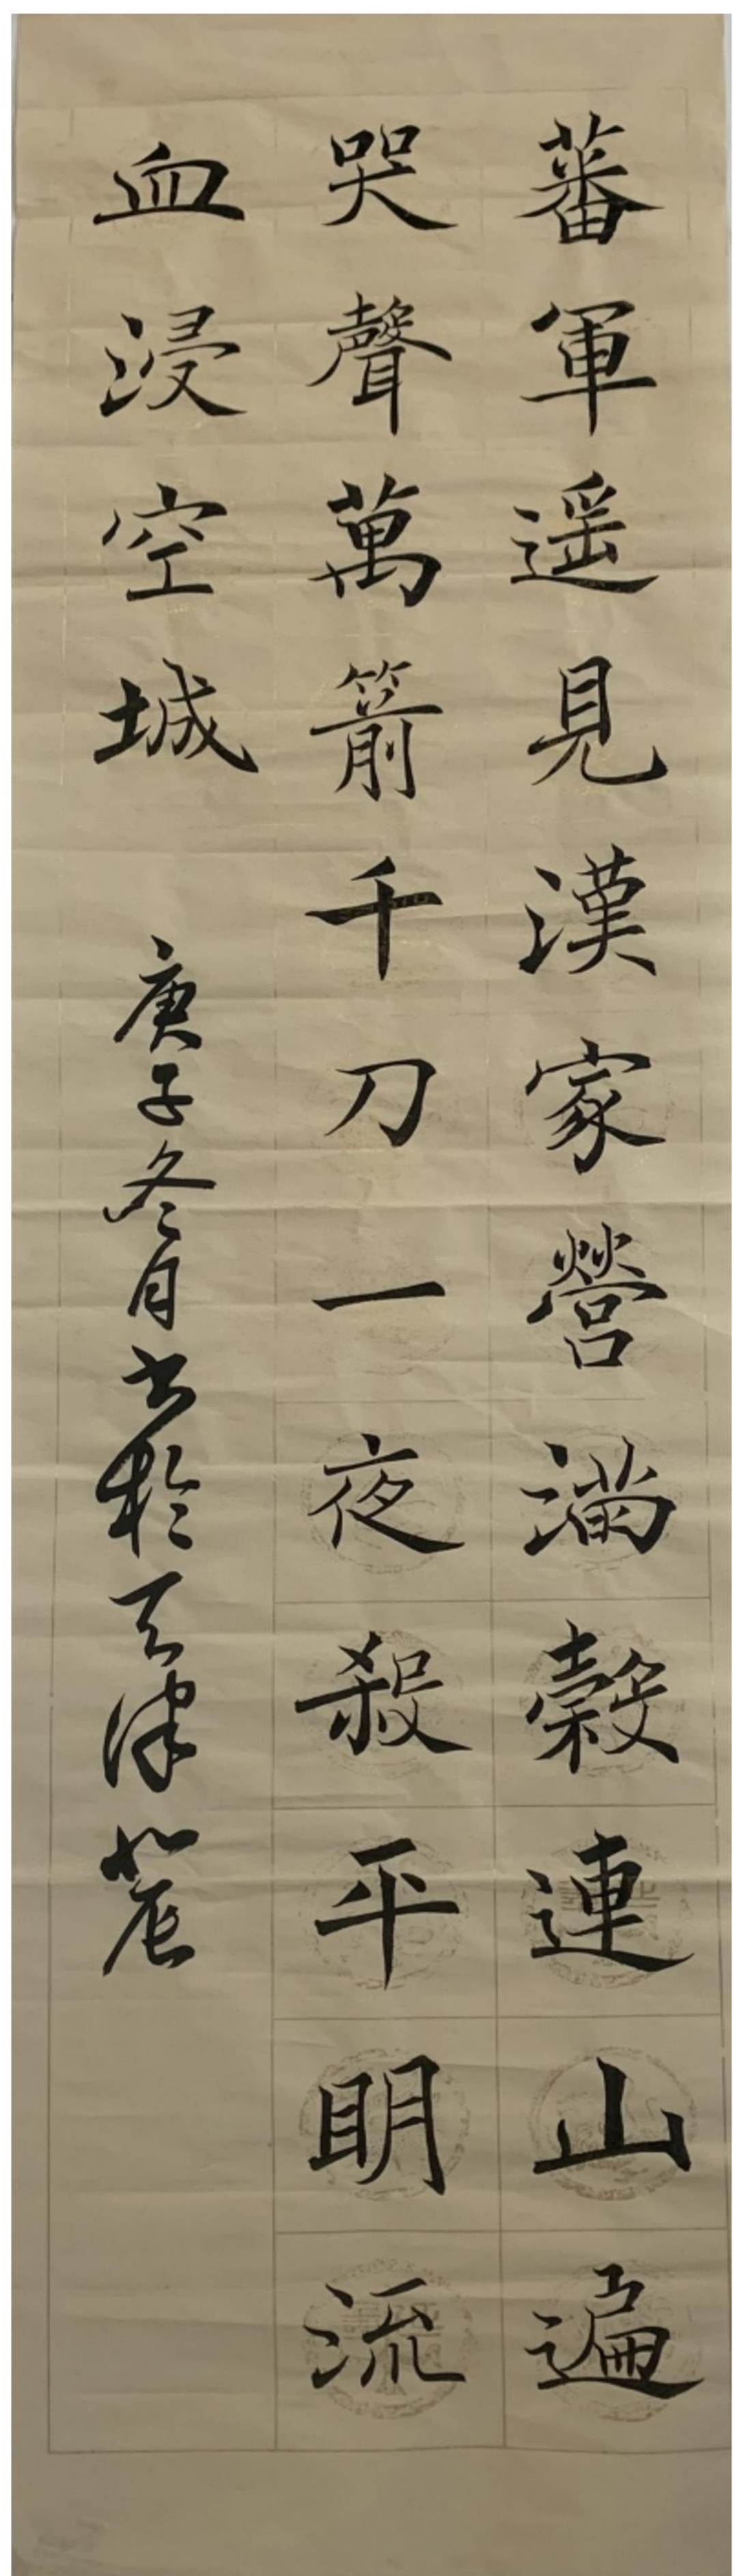 蕃軍遥見漢家營滿穀連山遍
哭聲萬箭千刀一夜殺平明流
血浸空城
庚子冬月书於天津北辰